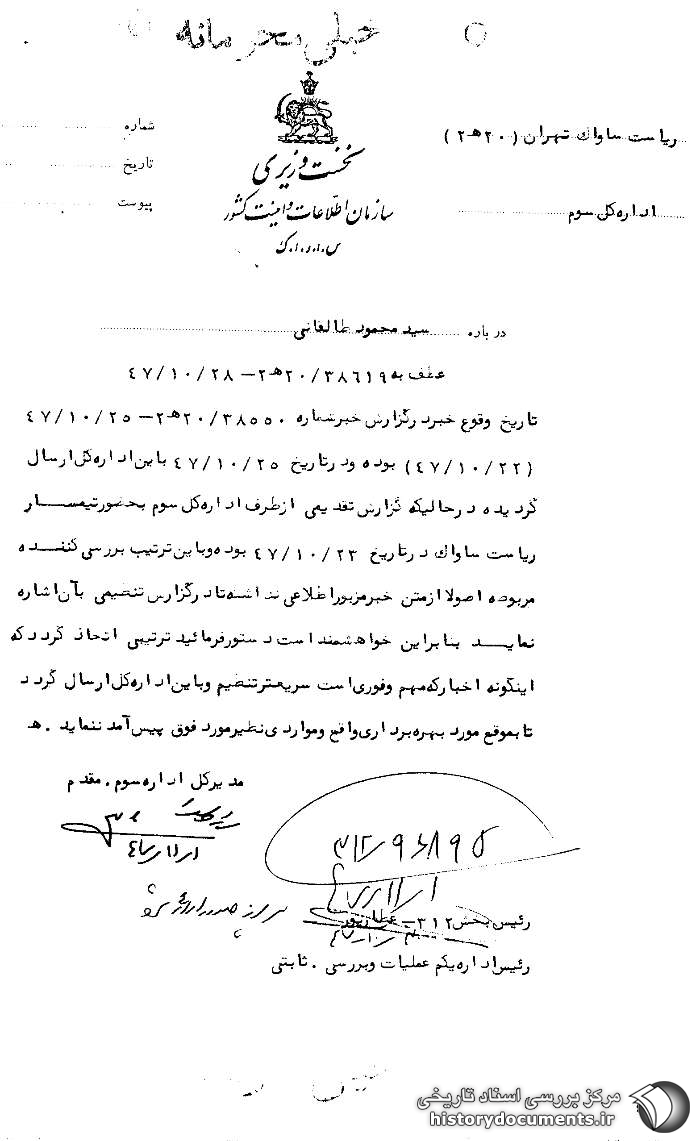 خیلی محرمانه
ریاست ساواک تهران (۲۰ه۲)
اداره کل سوم
نخست وزیری
سازمان اطلاعات و امنیت کشور
س.ا.و.ا.ک
شماره
تاریخ
پیوست
درباره سید محمود طالقانی
عطف به ۲۰/۳۸۶۱۹ه۲ – ۴۷/۱۰/۲۸
تاریخ وقوع خبر در گزارش خبر شماره ۲۰/۳۸۵۵۰ه۲ – ۴۷/۱۰/۲۵
(۴۷/۱۰/۲۲) بوده و در تاریخ ۴۷/۱۰/۲۵ باین اداره کل ارسال
گردیده در حالیکه گزارش تقدیمی از طرف اداره کل سوم بحضور تیمسار
ریاست ساواک در تاریخ ۴۷/۱۰/۲۳ بوده و باین ترتیب بررسی کننده
مربوطه اصولا از متن خبر مزبور اطلاعی نداشته تا در گزارش تنظیمی بآن اشاره
نماید بنابراین خواهشمند است دستور فرمائید ترتیبی اتخاذ گردد که
اینگونه اخبار که مهم و فوری است سریعتر تنظیم و باین اداره کل ارسال گردد
تا بموقع مورد بهره برداری واقع و مواردی نظیر مورد فوق پیش آمد ننماید . ه
مدیر کل اداره سوم . مقدم
رئیس بخش ۳۱۲ – عطارپور
رئیس اداره یکم عملیات و بررسی . ثابتی
مرکز بررسی اسناد تاریخی
historydocuments.ir